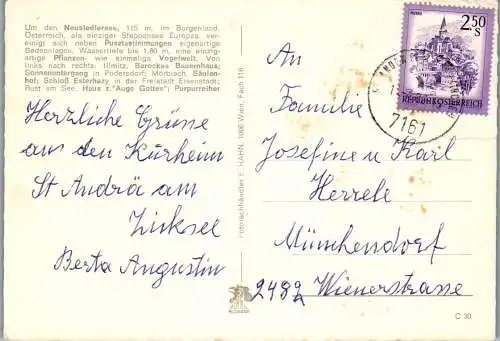 Um den Neusiedlersee, 115 m, im Burgenland,
Österreich, als einziger Steppensee Europas, ver-
einigt sich neben Pusztastimmungen eigenartige
Badeanlagen, Wassertiefe bis 1,80 m, eine einzig-
artige Pflanzen- wie einmalige Vogelwelt. Von
links nach rechts: Illmitz, Barockes Bauernhaus;
Sonnenuntergang in Podersdorf; Mörbisch, Säulen-
hof; Schloß Esterhazy in der Freistadt Eisenstadt;
Rust am See, Haus z. "Auge Gottes"; Purpurreiher
Herzliche Grüsse
aus den Kurheim
St Andrä am
Zicksee
Berta Augustin
Fotonachhändler F. HAHN, 1006 Wien, Fach 116
2.50
S
REPUBLIK ÖSTERREICH
7161
An
Familie
Josefine u Karl
Herrele
Münchendorf
2482 Wienerstrasse
C 30